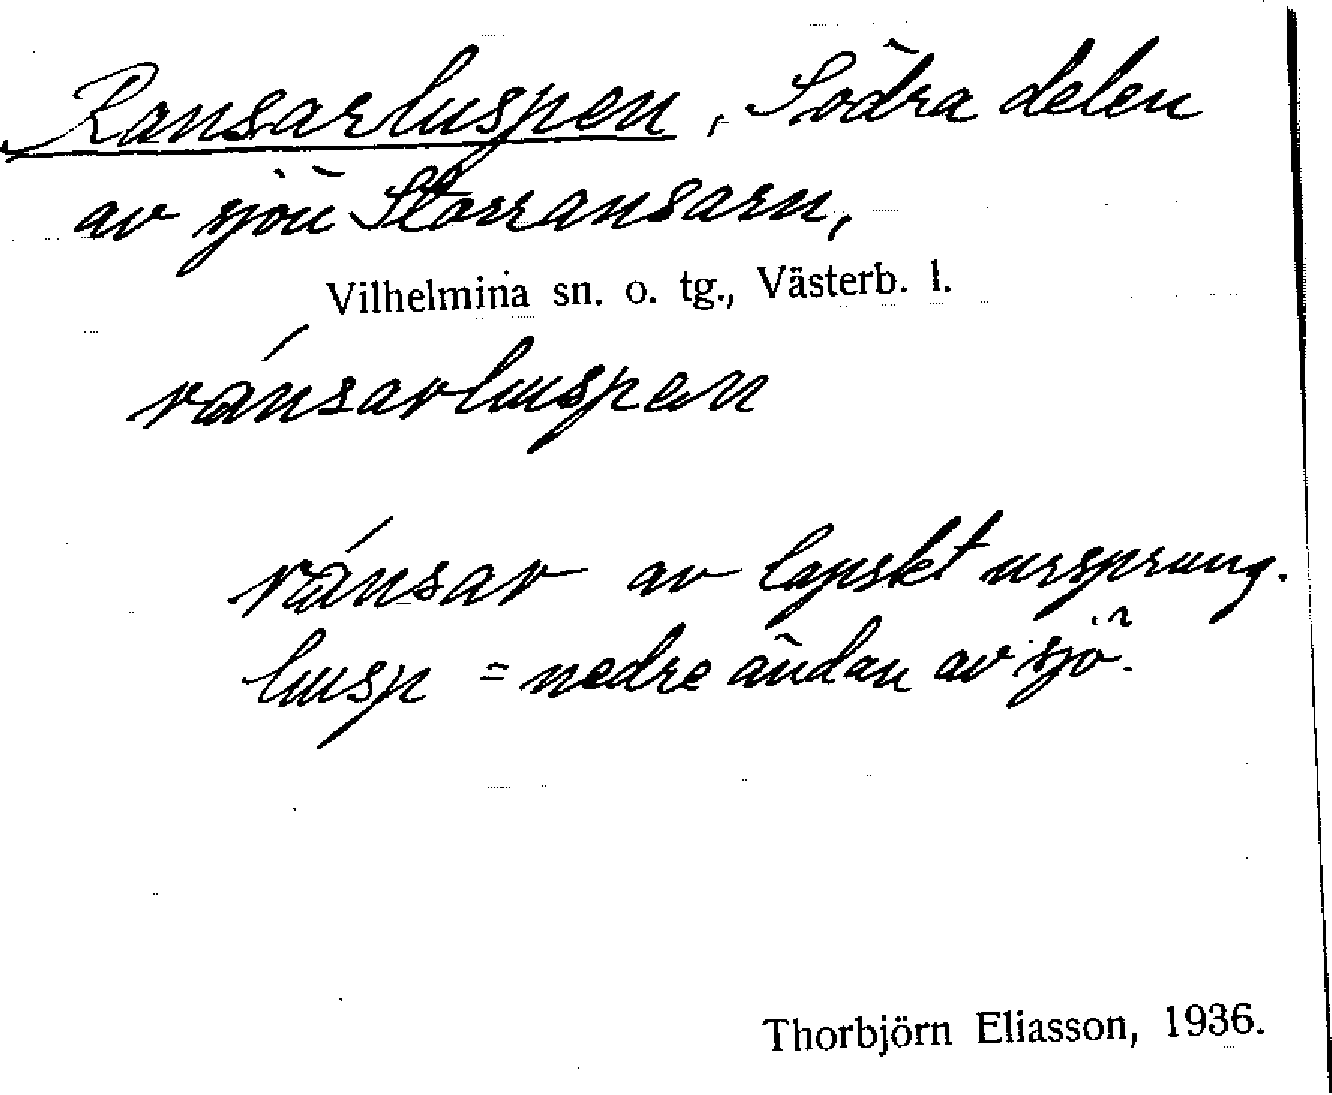 Ransarluspen, Södra delen
av sjön Storransarn,
Vilhelmina sn. o. tg., Västerb. l.
ránsarluspen
ránsar av lapskt ursprung.
lusp = nedre ändan av sjö.
Thorbjörn Eliasson, 1936.